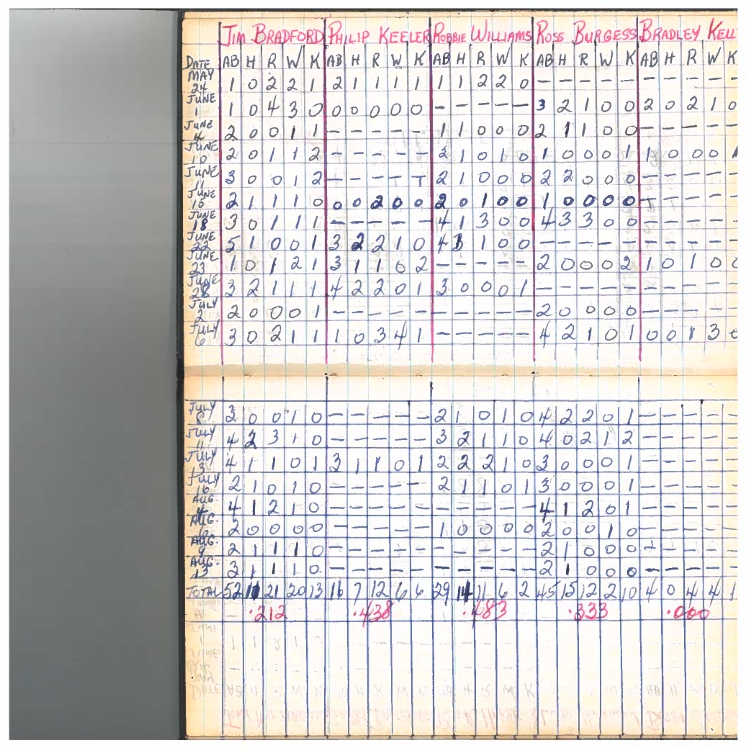 JIM BRADFORD PHILIP KEELER ROBBIE WILLIAMS ROSS BURGESS BRADLEY KELL
DATE AB H R W K AB H R W K AB H R W K AB H R W K AB H R W K
MAY 24 1 0 2 2 1 2 1 1 1 1 1 1 2 2 0 - - - - - - - - -
JUNE 1 1 0 4 3 0 0 0 0 0 0 - - - - - 3 2 1 0 0 2 0 2 1 0
JUNE 4 2 0 0 1 1 - - - - - 1 1 0 0 0 2 1 1 0 0 - - - -
JUNE 10 2 0 1 1 2 - - - - - 2 1 0 1 0 1 0 0 0 1 1 0 0 0 1
JUNE 11 3 0 0 1 2 - - - - - 2 1 0 0 0 2 2 0 0 0 - - - -
JUNE 15 2 1 1 1 0 0 0 2 0 0 2 0 1 0 0 1 0 0 0 0 - - - -
JUNE 18 3 0 1 1 1 - - - - - 4 1 3 0 0 4 3 3 0 0 - - - -
JUNE 22 5 1 0 0 1 3 2 2 1 0 4 3 1 0 0 - - - - - - - - -
JUNE 23 1 0 1 2 1 3 1 1 0 2 - - - - - 2 0 0 0 2 1 0 1 0 0
JUNE 28 3 2 1 1 1 4 2 2 0 1 3 0 0 0 1 - - - - - - - - -
JULY 2 2 0 0 0 1 - - - - - - - - - - 2 0 0 0 0 - - - -
JULY 6 3 0 2 1 1 1 0 3 4 1 - - - - - 4 2 1 0 1 0 0 1 3 0
JULY 8 3 0 0 1 0 - - - - - 2 1 0 1 0 4 2 2 0 1 - - - -
JULY 11 4 2 3 1 0 - - - - - 3 2 1 1 0 4 0 2 1 2 - - - -
JULY 13 4 1 1 0 1 3 1 1 0 1 2 2 2 1 0 3 0 0 0 1 - - - -
JULY 16 2 1 0 1 0 - - - - - 2 1 1 0 1 3 0 0 0 1 - - - -
AUG. 4 4 1 2 1 0 - - - - - 4 1 2 0 1 - - - -
AUG. 2 0 0 0 0 - - - - - 1 0 0 0 0 2 0 0 1 0 - - - -
AUG. 9 2 1 1 1 0 - - - - - 2 1 0 0 0 - - - -
AUG. 13 3 1 1 1 0 - - - - - 2 1 0 0 0 - - - -
TOTAL 52 11 21 20 13 16 7 12 6 6 29 14 11 6 2 45 15 12 2 10 4 0 4 4 1
.212 .438 .483 .333 .000